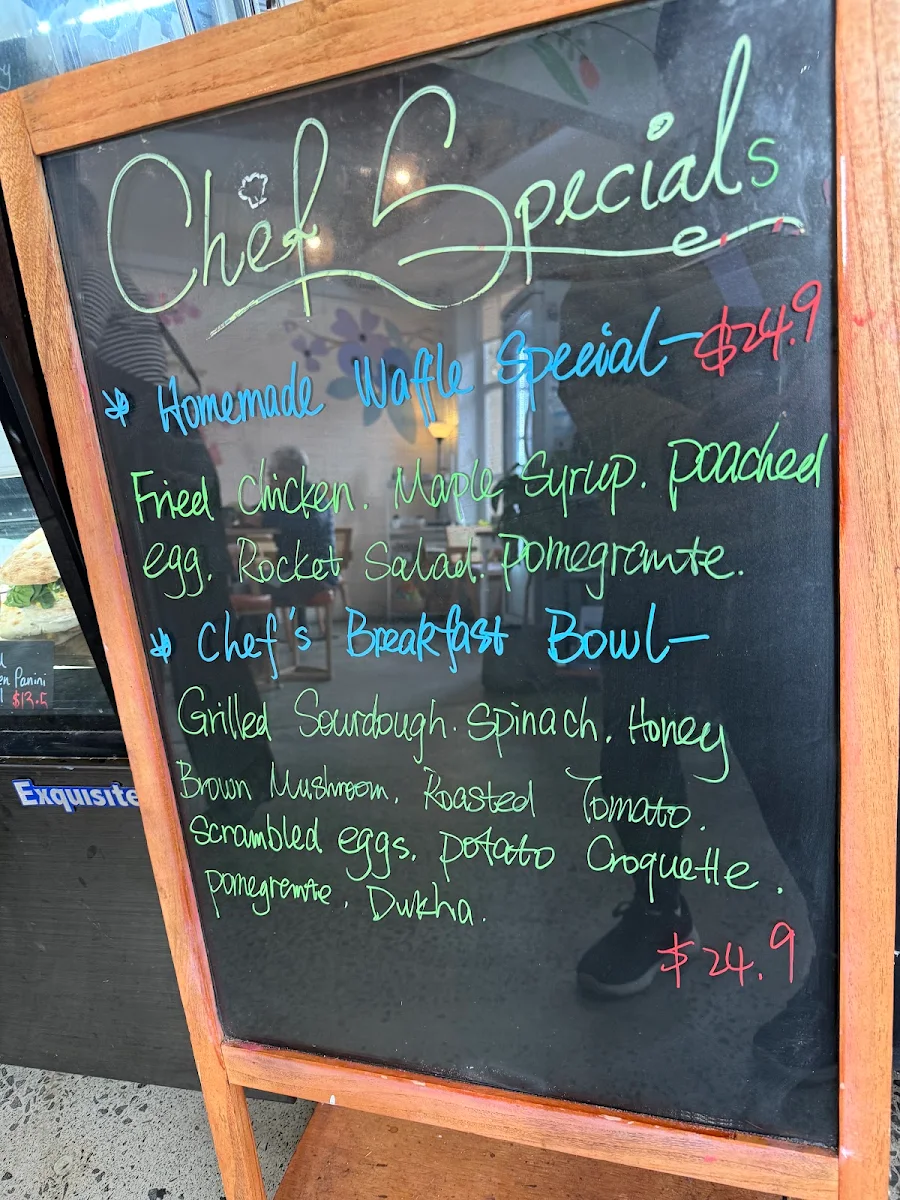 Chef Specials
Homemade Waffle Special - $24.9
Fried Chicken. Maple Syrup. poached
egg. Rocket Salad. pomegranate.
Chef's Breakfast Bowl -
Grilled Sourdough. Spinach. Honey
Brown Mushroom. Roasted Tomato.
Scrambled eggs. potato Croquette.
pomegranate. Dukha.
$24.9
Panini
$13.5
Exquisite